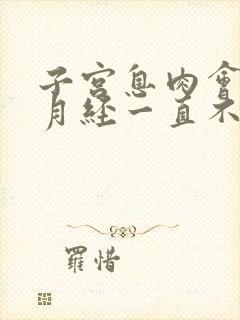 子宫息肉會
月经一直不
羅惜